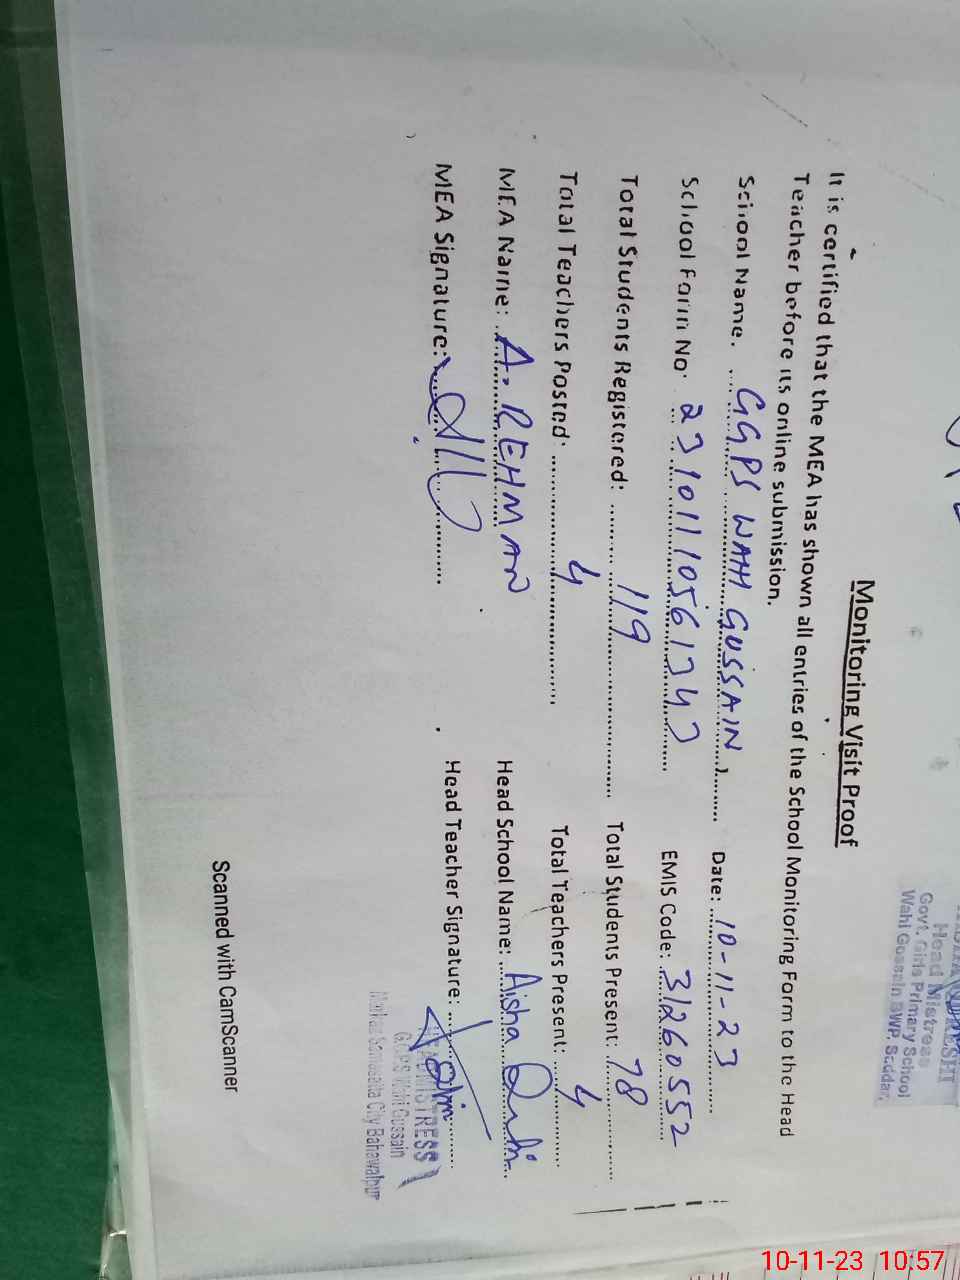 Head Mistress
Govt. Girls Primary School
Wahi Gossain BWP, Saddar,
Monitoring Visit Proof
It is certified that the MEA has shown all entries of the School Monitoring Form to the Head
Teacher before its online submission.
School Name. GGPS WAHI GUSSAIN Date: 10-11-23
School Form No: EMIS Code: 31260552
Total Students Registered: 119 Total Students Present: 78
Total Teachers Posted: 4 Total Teachers Present: 4
MEA Name: A. REHMAN Head School Name: Aisha
MEA Signature: Head Teacher Signature:
HEADMISTRESS
GGPS Wahi Gussain
City Bahawalpur
Scanned with CamScanner
10-11-23 10:57